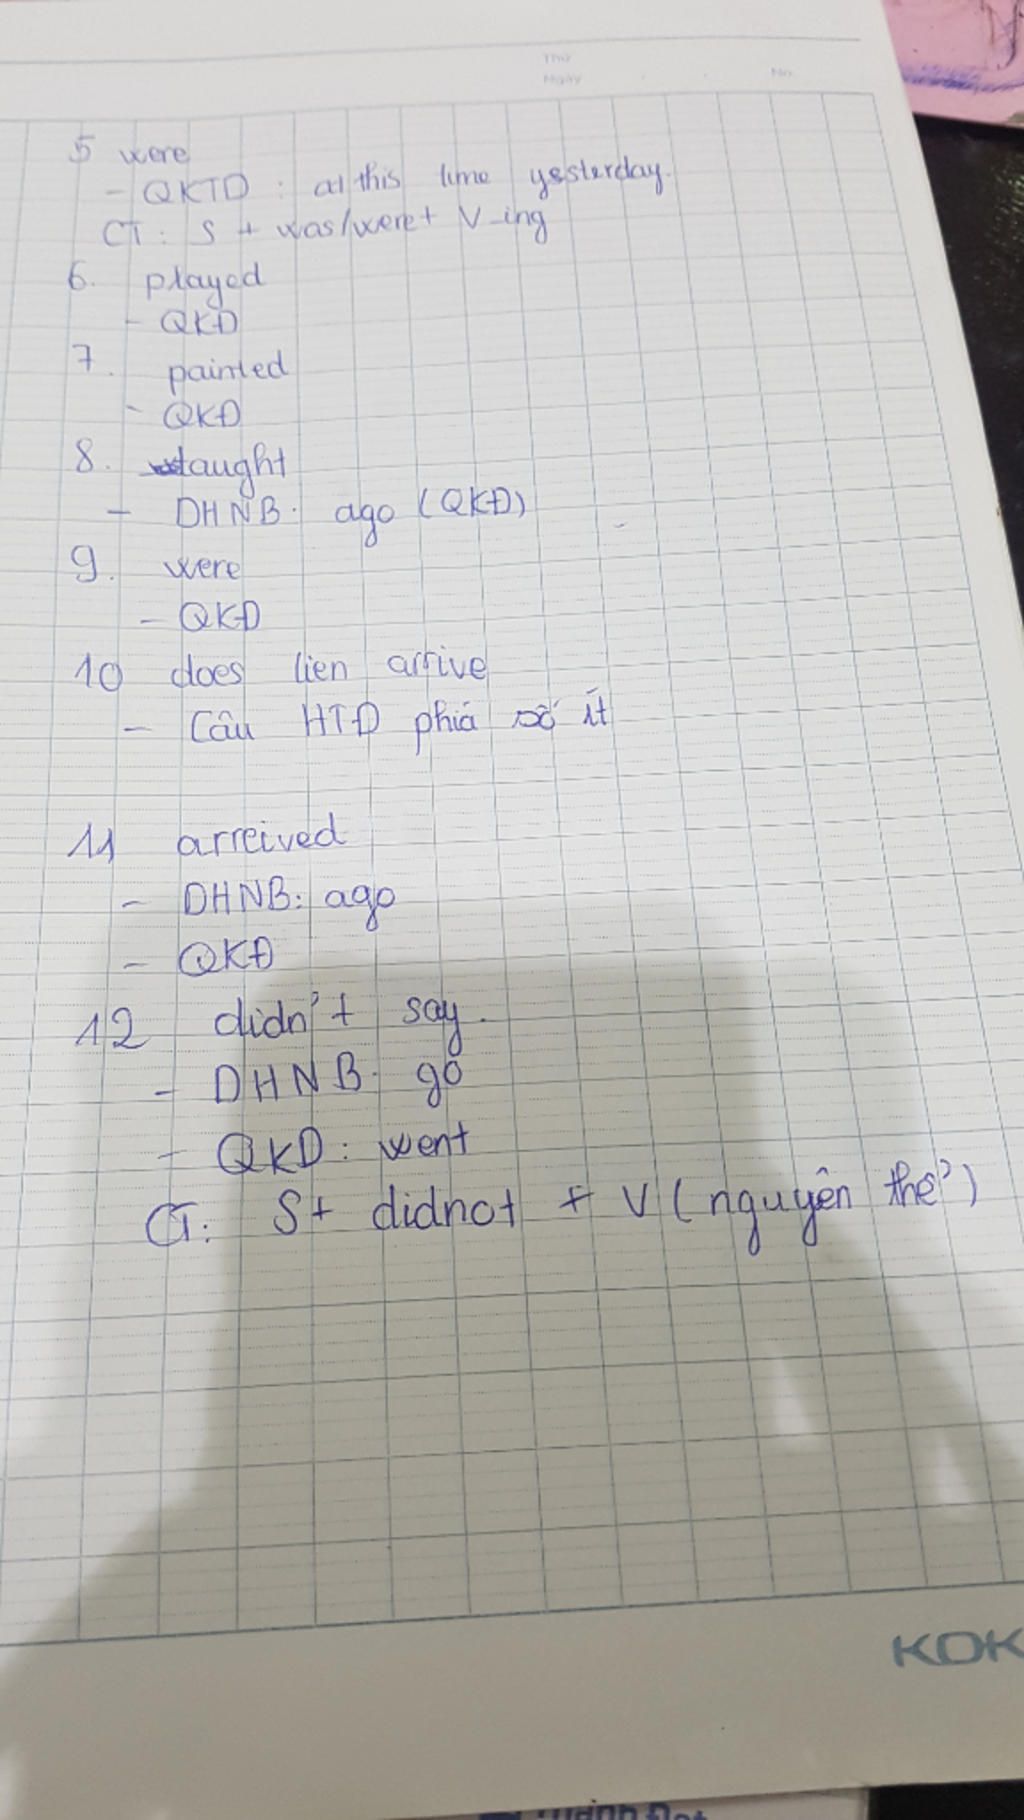 Thứ
Ngày
No.
5 were
- QKTD : at this time yesterday.
CT : S + was/were + V-ing
6. played
- QKD
7. painted
- QKD
8. taught
- DHNB: ago (QKĐ)
9. were
- QKD
10 does lien arrive
- Câu HTĐ phiá số ít
11 arreived
- DHNB: ago
- QKĐ
12 didn't say.
- DHNB: go
- QKD : went
CT: S + didnot + V (nguyên thể)
KOK